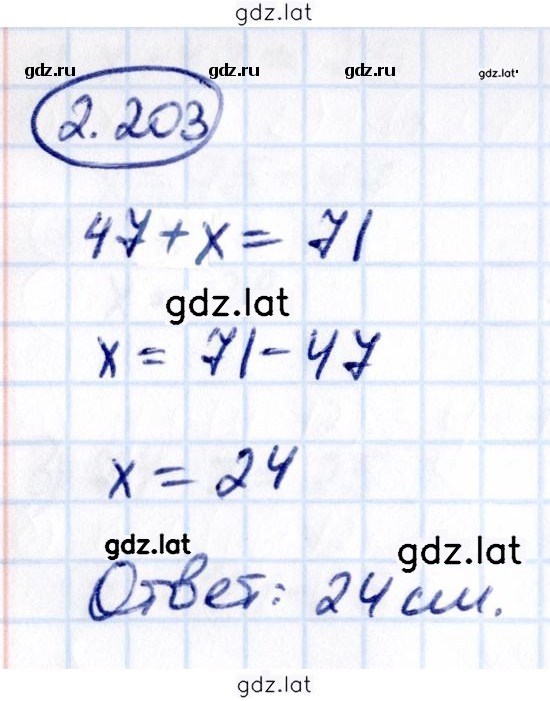 gdz.lat
gdz.ru gdz.ru gdz.lat
2.203
47+x= 71
gdz.lat
x= 71-47
x= 24
gdz.lat gdz.lat
Ответ: 24 см.
gdz.lat